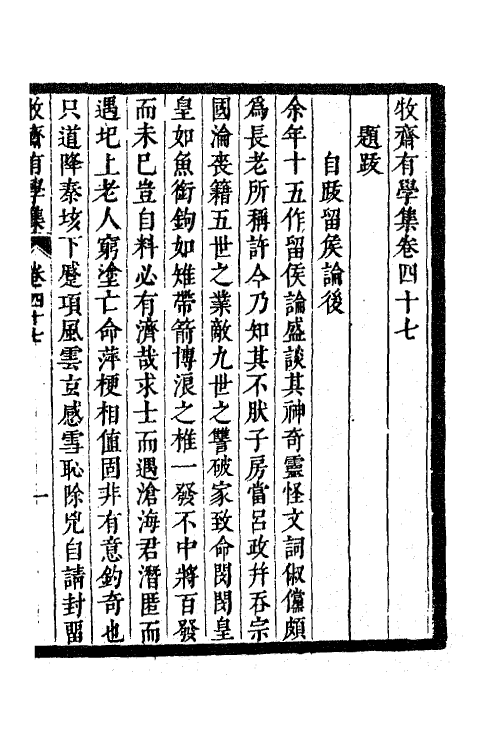 牧齋有學集卷四十七
題跋
自跋留侯論後
余年十五作留侯論盛談其神奇靈怪文詞俶儻頗
爲長老所稱許今乃知其不肰子房當呂政幷吞宗
國淪喪籍五世之業敵九世之讐破家致命閔閔皇
皇如魚銜鉤如雉帶箭博浪之椎一發不中將百發
而未已豈自料必有濟哉求士而遇滄海君潛匿而
遇圯上老人窮塗亡命萍梗相值固非有意釣奇也
只道降秦垓下蹙項風雲玄感雪恥除兇自請封留
牧齋有學集 卷四十七 一